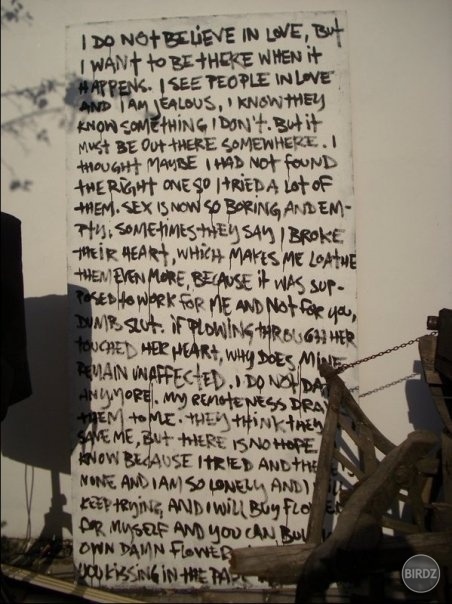 I DO NOT BELIEVE IN LOVE, BUT
I WANT TO BE THERE WHEN IT
HAPPENS. I SEE PEOPLE IN LOVE
AND I AM JEALOUS, I KNOW THEY
KNOW SOMETHING I DON'T. BUT IT
MUST BE OUT THERE SOMEWHERE. I
THOUGHT MAYBE I HAD NOT FOUND
THE RIGHT ONE SO I TRIED A LOT OF
THEM. SEX IS NOW SO BORING AND EM-
PTY. SOMETIMES THEY SAY I BROKE
THEIR HEART, WHICH MAKES ME LOATHE
THEM EVEN MORE, BECAUSE IT WAS SUP-
POSED TO WORK FOR ME AND NOT FOR YOU,
DUMB SLUT. IF PLOWING THROUGH HER
TOUCHED HER HEART, WHY DOES MINE
REMAIN UNAFFECTED. I DO NOT
ANYMORE. MY REMOTENESS
THEM TO ME. THEY THINK THEY
SAVE ME, BUT THERE IS NO HOPE
KNOW BECAUSE I TRIED AND
NONE AND I AM SO LONELY AND I
KEEP TRYING, AND I WILL BUY
FOR MYSELF AND YOU CAN
OWN DAMN
YOU KISSING IN THE
BIRDZ